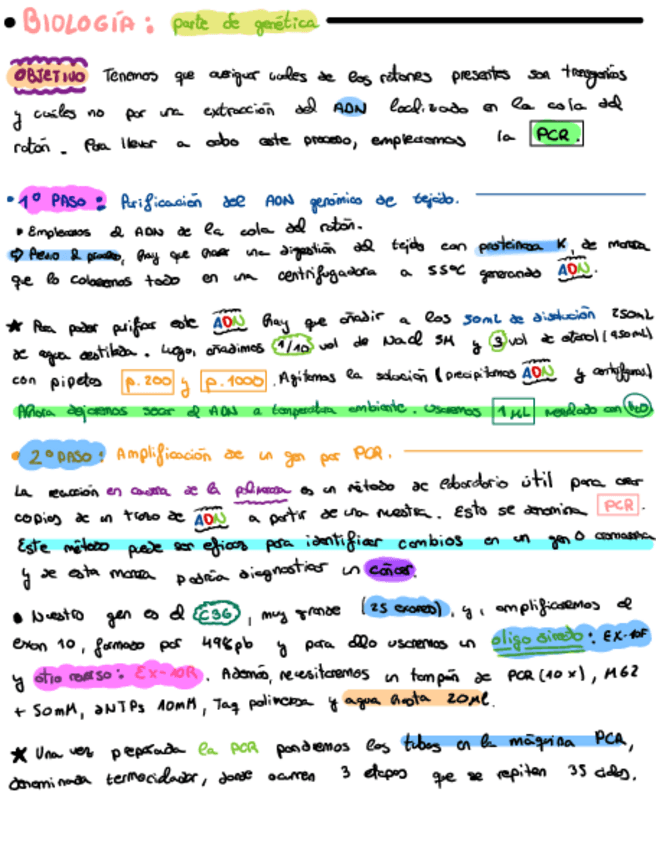 • BIOLOGÍA: parte de genética
OBJETIVO Tenemos que averiguar cuales de los ratones presentes son transgénicos
y cuáles no por una extracción del ADN localizado en la cola del
ratón. Para llevar a cabo este proceso, emplearemos la PCR.
• 1º PASO: Purificación del ADN genómico de tejido.
• Empleamos el ADN de la cola del ratón.
⇨ Pero 2 pasos, hay que hacer una digestión del tejido con proteinasa K, de manera
que lo colocamos todo en una centrifugadora a 55ºC generando ADN.
★ Para poder purificar este ADN hay que añadir a los 50mL de disolución 250mL
de agua destilada. Luego, añadimos 1/10 vol de NaCl 5M y 3 vol de etanol (950mL)
con pipetas p.200 y p.1000. Agitamos la solución (precipitamos ADN y centrifugamos)
Ahora dejaremos secar el ADN a temperatura ambiente. Usaremos 1 µL mezclado con H2O
• 2º PASO: Amplificación de un gen por PCR.
La reacción en cadena de la polimerasa es un método de laboratorio útil para crear
copias de un trozo de ADN a partir de una muestra. Esto se denomina PCR.
Este método puede ser eficaz para identificar cambios en un gen o cromosoma
y de esta manera podría diagnosticar un cáncer.
• Nuestro gen es el C36, muy grande (25 exones), y, amplificaremos el
exon 10, formado por 498pb y para ello usaremos un oligo directo: EX-10F
y otro reverso: EX-10R. Además, necesitaremos un tampón de PCR (10x), MG2
+ 50mM, dNTPs 10mM, Taq polimerasa y agua hasta 20µl.
★ Una vez preparada la PCR pondremos los tubos en la máquina PCR,
denominada termociclador, donde ocurren 3 etapas que se repiten 35 ciclos.